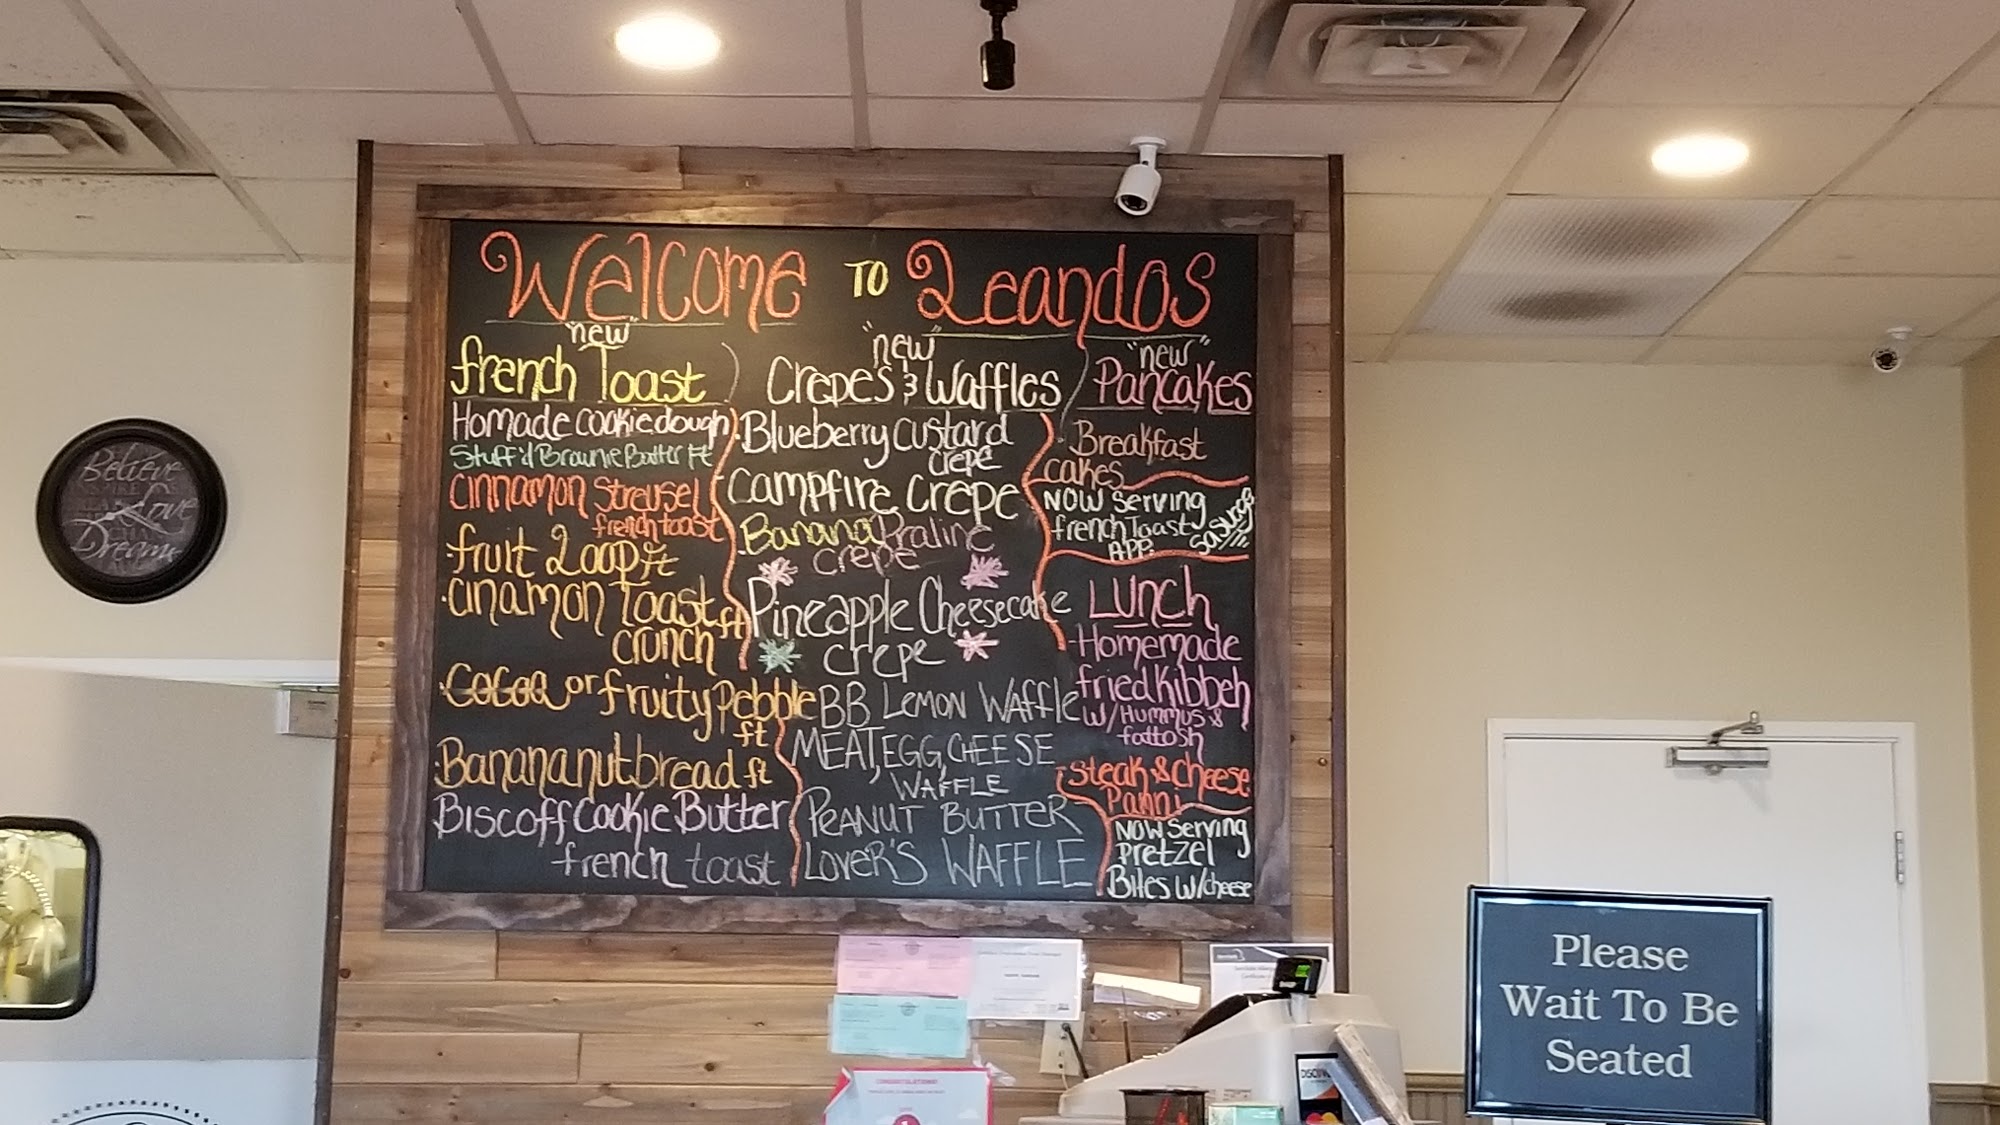 Welcome TO Leandos
"new"
french Toast
Homade cookie dough
Stuff'd Brownie Batter ft
cinnamon Streusel
french toast
·fruit Loop ft
·cinamon Toast ft
crunch
·Cocoa or fruity Pebble
ft
·Banana nut bread ft
Biscoff Cookie Butter
french toast
"new"
Crepes & Waffles
·Blueberry custard
crepe
Campfire Crepe
Banana Praline
crepe
Pineapple Cheesecake
crepe
BB Lemon Waffle
MEAT, EGG, CHEESE
WAFFLE
PEANUT BUTTER
LOVER'S WAFFLE
"new"
Pancakes
Breakfast
cakes
NOW Serving
french Toast
APP.
LUnch
Homemade
fried Kibbeh
w/Hummus &
fattosh
Steak & Cheese
Panni
NOW Serving
Pretzel
Bites w/cheese
Believe
Love
Dreams
Please
Wait To Be
Seated
CONGRATULATIONS!
DISCOVER